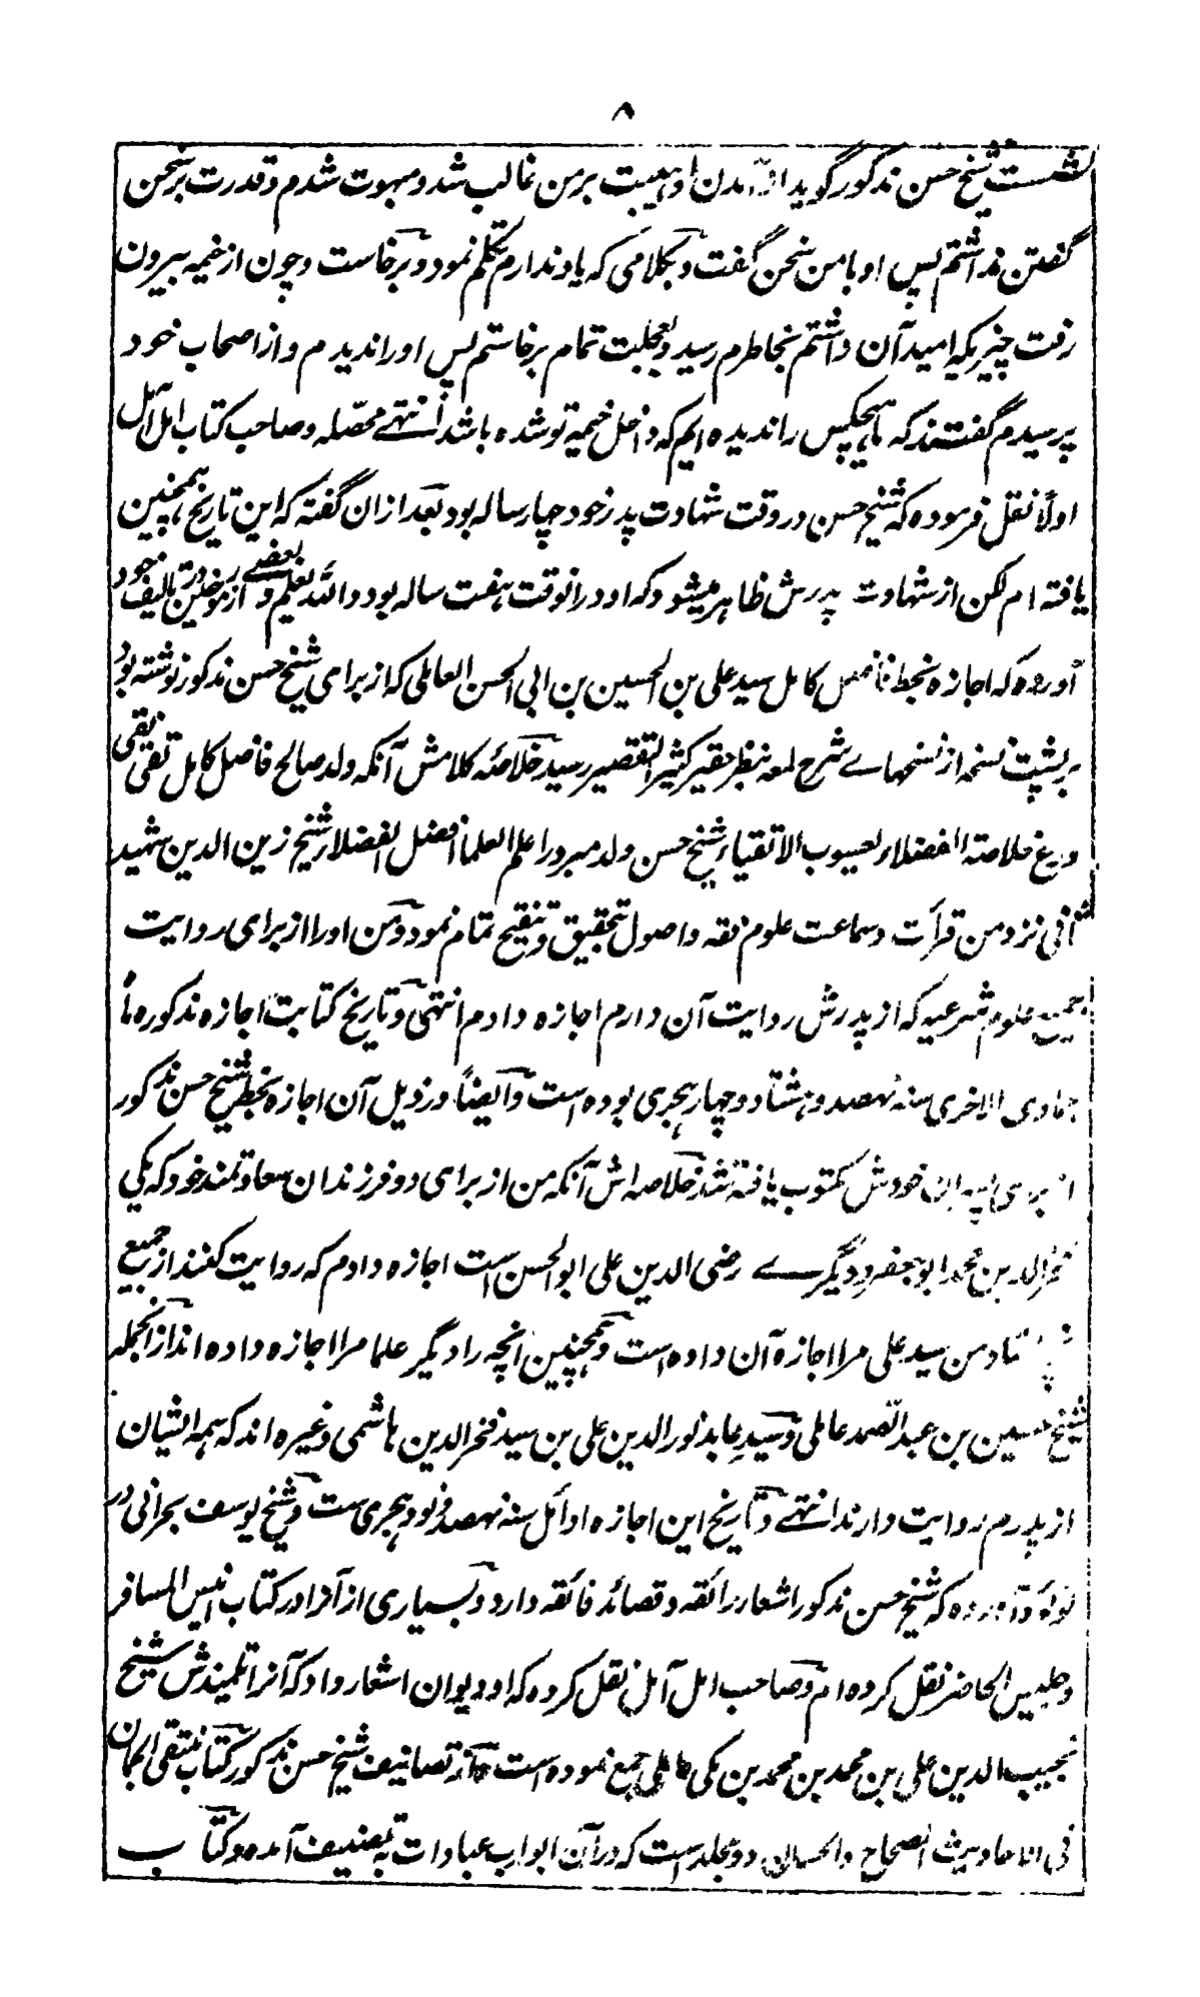 ۸
نشست شیخ حسن مذکور گوید از آمدن او هیبت بر من غالب شد و مبهوت شدم و قدرت بر سخن
گفتن نداشتم پس او با من سخن گفت و بکلامی که یاد ندارم تکلم نمود و برخاست و چون از خیمه بیرون
رفت چیزیکه امید آن داشتم بخاطرم رسید و بعجلت تمام برخاستم پس او را ندیدم و از اصحاب خود
پرسیدم گفتند که ما هیچکس را ندیده ایم که داخل خیمه تو شده باشد انتهے محصله و صاحب کتاب امل آمل
اولاً نقل فرموده که شیخ حسن در وقت شهادت پدر خود چار ساله بود بعد ازان گفته که این تاریخ همچنین
یافته ام لکن از شهادت پدرش ظاهر میشود که او در انوقت هفت ساله بود و الله یعلم و بعضے از مورخین در تالیف خود
آورده که اجازه بخط فاضل کامل سید علی بن الحسین بن ابی الحسن العاملی که از برای شیخ حسن مذکور نوشته بود
بر پشت نسخه از نسخهاے شرح لمعه بنظر حقیر کثیر التقصیر رسید خلاصه کلامش آنکه ولد صالح فاضل کامل تقی نقی
ورع خلاصة الفضلاء و یعسوب الاتقیاء شیخ حسن ولد مبرور اعلم العلما افضل الفضلا شیخ زین الدین شهید
ثانی نزد من قرأت و سماعت علوم فقه و اصول بتحقیق و تنقیح تمام نمود و من او را از برای روایت
جمیع علوم شرعیه که از پدرش روایت آن دارم اجازه دادم انتهی و تاریخ کتابت اجازه مذکوره ماه
جمادی الاخری سنه نهصد و هشتاد و چهار هجری بوده است و ایضاً در ذیل آن اجازه بخط شیخ حسن مذکور
از برای پسران خودش مکتوب یافته شد خلاصه اش آنکه من از برای دو فرزندان سعادتمند خود که یکی
فخر الدین محمد ابو جعفر و دیگرے رضی الدین علی ابو الحسن است اجازه دادم که روایت کنند از من جمیع
استاد من سید علی مرا اجازه آن داده است و همچنین آنچه را دیگر علما مرا اجازه داده اند از انجمله
شیخ حسین بن عبد الصمد عاملی و سید عابد نور الدین علی بن سید فخر الدین هاشمی و غیره اند که همه ایشان
از پدرم روایت دارند انتهے و تاریخ این اجازه اوائل سنه نهصد و نود هجری ست و شیخ یوسف بحرانی در
لولوه آورده که شیخ حسن مذکور اشعار رائقه و قصائد فائقه دارد و بسیاری از آنرا در کتاب انیس المسافر
و جلیس الحاضر نقل کرده ام و صاحب امل آمل نقل کرده که او دیوان اشعار دارد که آنرا تلمیذش شیخ
نجیب الدین علی بن محمد بن محمد بن مکی عاملی جمع نموده است و از تصانیف شیخ حسن مذکور کتاب منتقی الجمان
فی الاحادیث الصحاح و الحسان دو مجلد است که در آن ابواب عبادات به تصنیف آمده و کتاب